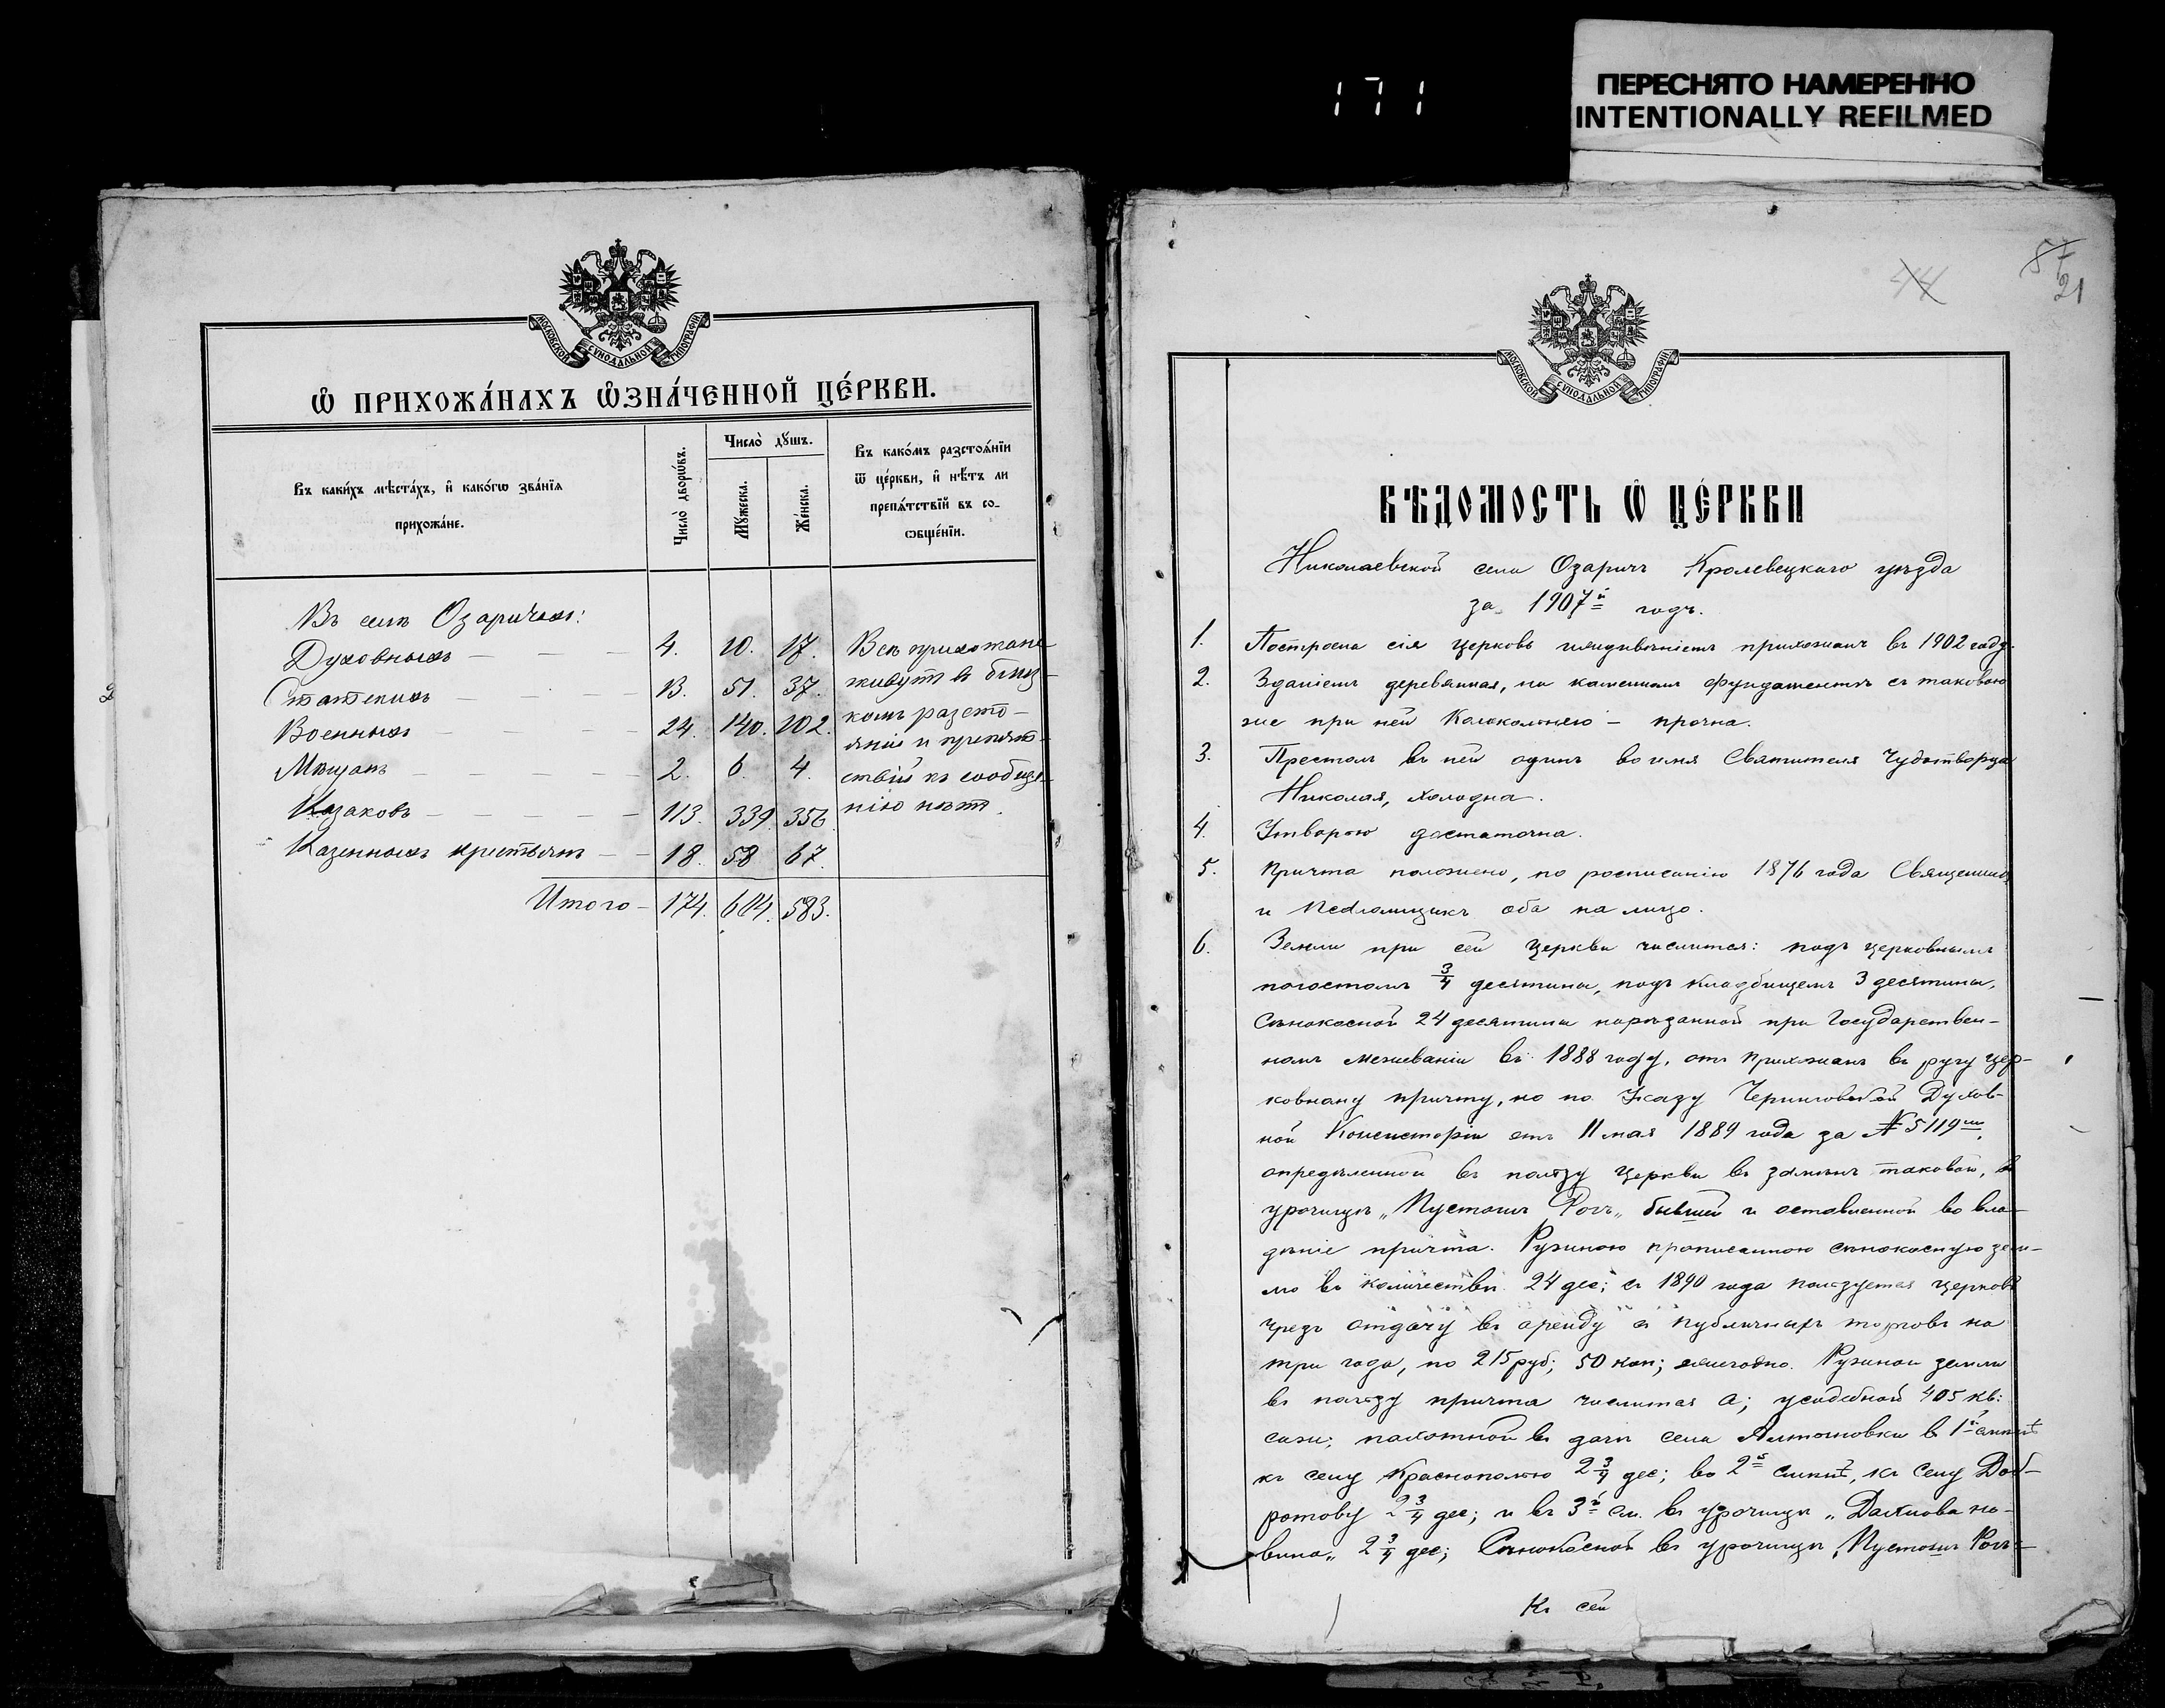 171
ПЕРЕСНЯТО НАМЕРЕННО
INTENTIONALLY REFILMED
МОСКОВСКОЙ СѴНОДАЛЬНОЙ ТИПОГРАФІИ
Ѽ ПРИХОЖА́НАХЪ ѼЗНА́ЧЕННОЙ ЦЕ́РКВИ.
Въ каки́хъ мѣста́хъ, и҆ како́гѡ зва́нїѧ
прихожа́не.
Число̀ дворѡ́въ.
Число̀ дꙋ́шъ.
Мꙋ́жеска.
Же́нска.
Въ како́мъ разстоѧ́нїи
ѿ це́ркви, и҆ нѣ́тъ ли
препѧ́тствїй въ со-
ѻбще́нїи.
Въ селѣ Озаричахъ:
Духовныхъ — — — 4. 10. 17. Всѣ прихожане
Статскихъ — — — 13. 51. 37. живутъ въ близ-
Военныхъ — — — 24. 140. 102. комъ разсто-
яніи и препят-
Мѣщанъ — — — — 2. 6. 4. ствій къ сообще-
Казаковъ — — — — 113. 339. 356. нію нѣтъ.
Казенныхъ крестьянъ — — 18. 58 67.
Итого — 174. 604. 583.
44
57
21
МОСКОВСКОЙ СѴНОДАЛЬНОЙ ТИПОГРАФІИ
ВѢДОМОСТЬ Ѽ ЦЕ́РКВИ
Николаевской села Озаричъ Кролевецкаго уѣзда
за 1907й годъ.
1. Построена сія церковь иждивѣніемъ прихожанъ въ 1902 году.
2. Зданіемъ деревянная, на каменномъ фундаментѣ съ таковою
же при ней Колокольнею — прочна.
3. Престолъ въ ней одинъ во имя Святителя Чудотворца
Николая, холодна.
4. Утварью достаточна.
5. Причта положено, по росписанію 1876 года Священникъ
и Псаломщикъ оба на лицо.
6. Земли при сей Церкви числится: подъ церковнымъ
погостомъ 3/4 десятины, подъ кладбищемъ 3 десятины,
Сѣнокосной 24 десятины нарѣзанной при Государствен-
номъ межеваніи въ 1888 году, отъ прихожанъ въ ругу цер-
ковному причту, но по Указу Черниговской Духов-
ной Консисторіи отъ 11 мая 1889 года за № 5119мъ,
опредѣленной въ пользу Церкви въ замѣнъ таковой, въ
урочищѣ „Пустошъ Рогъ„ бывшей и оставленной во вла-
дѣніе причта. Ружною прописанною сѣнокосную зем-
лю въ количествѣ 24 дес; съ 1890 года пользуется церковь
чрезъ отдачу въ аренду съ публичныхъ торговъ на
три года, по 215 руб; 50 коп; ежегодно. Ружной земли
въ пользу причта числится а; усадебной 405 кв:
саж; пахотной въ дачѣ села Алтыновки въ 1й смѣнѣ
къ селу Краснополью 2 3/4 дес; во 2й смѣнѣ, къ селу Доб-
ротову 2 3/4 дес; и въ 3й см. въ урочищѣ „
вина„ 2 3/4 дес; Сѣнокосной въ урочищѣ „Пустошъ Рогъ—
Къ сей